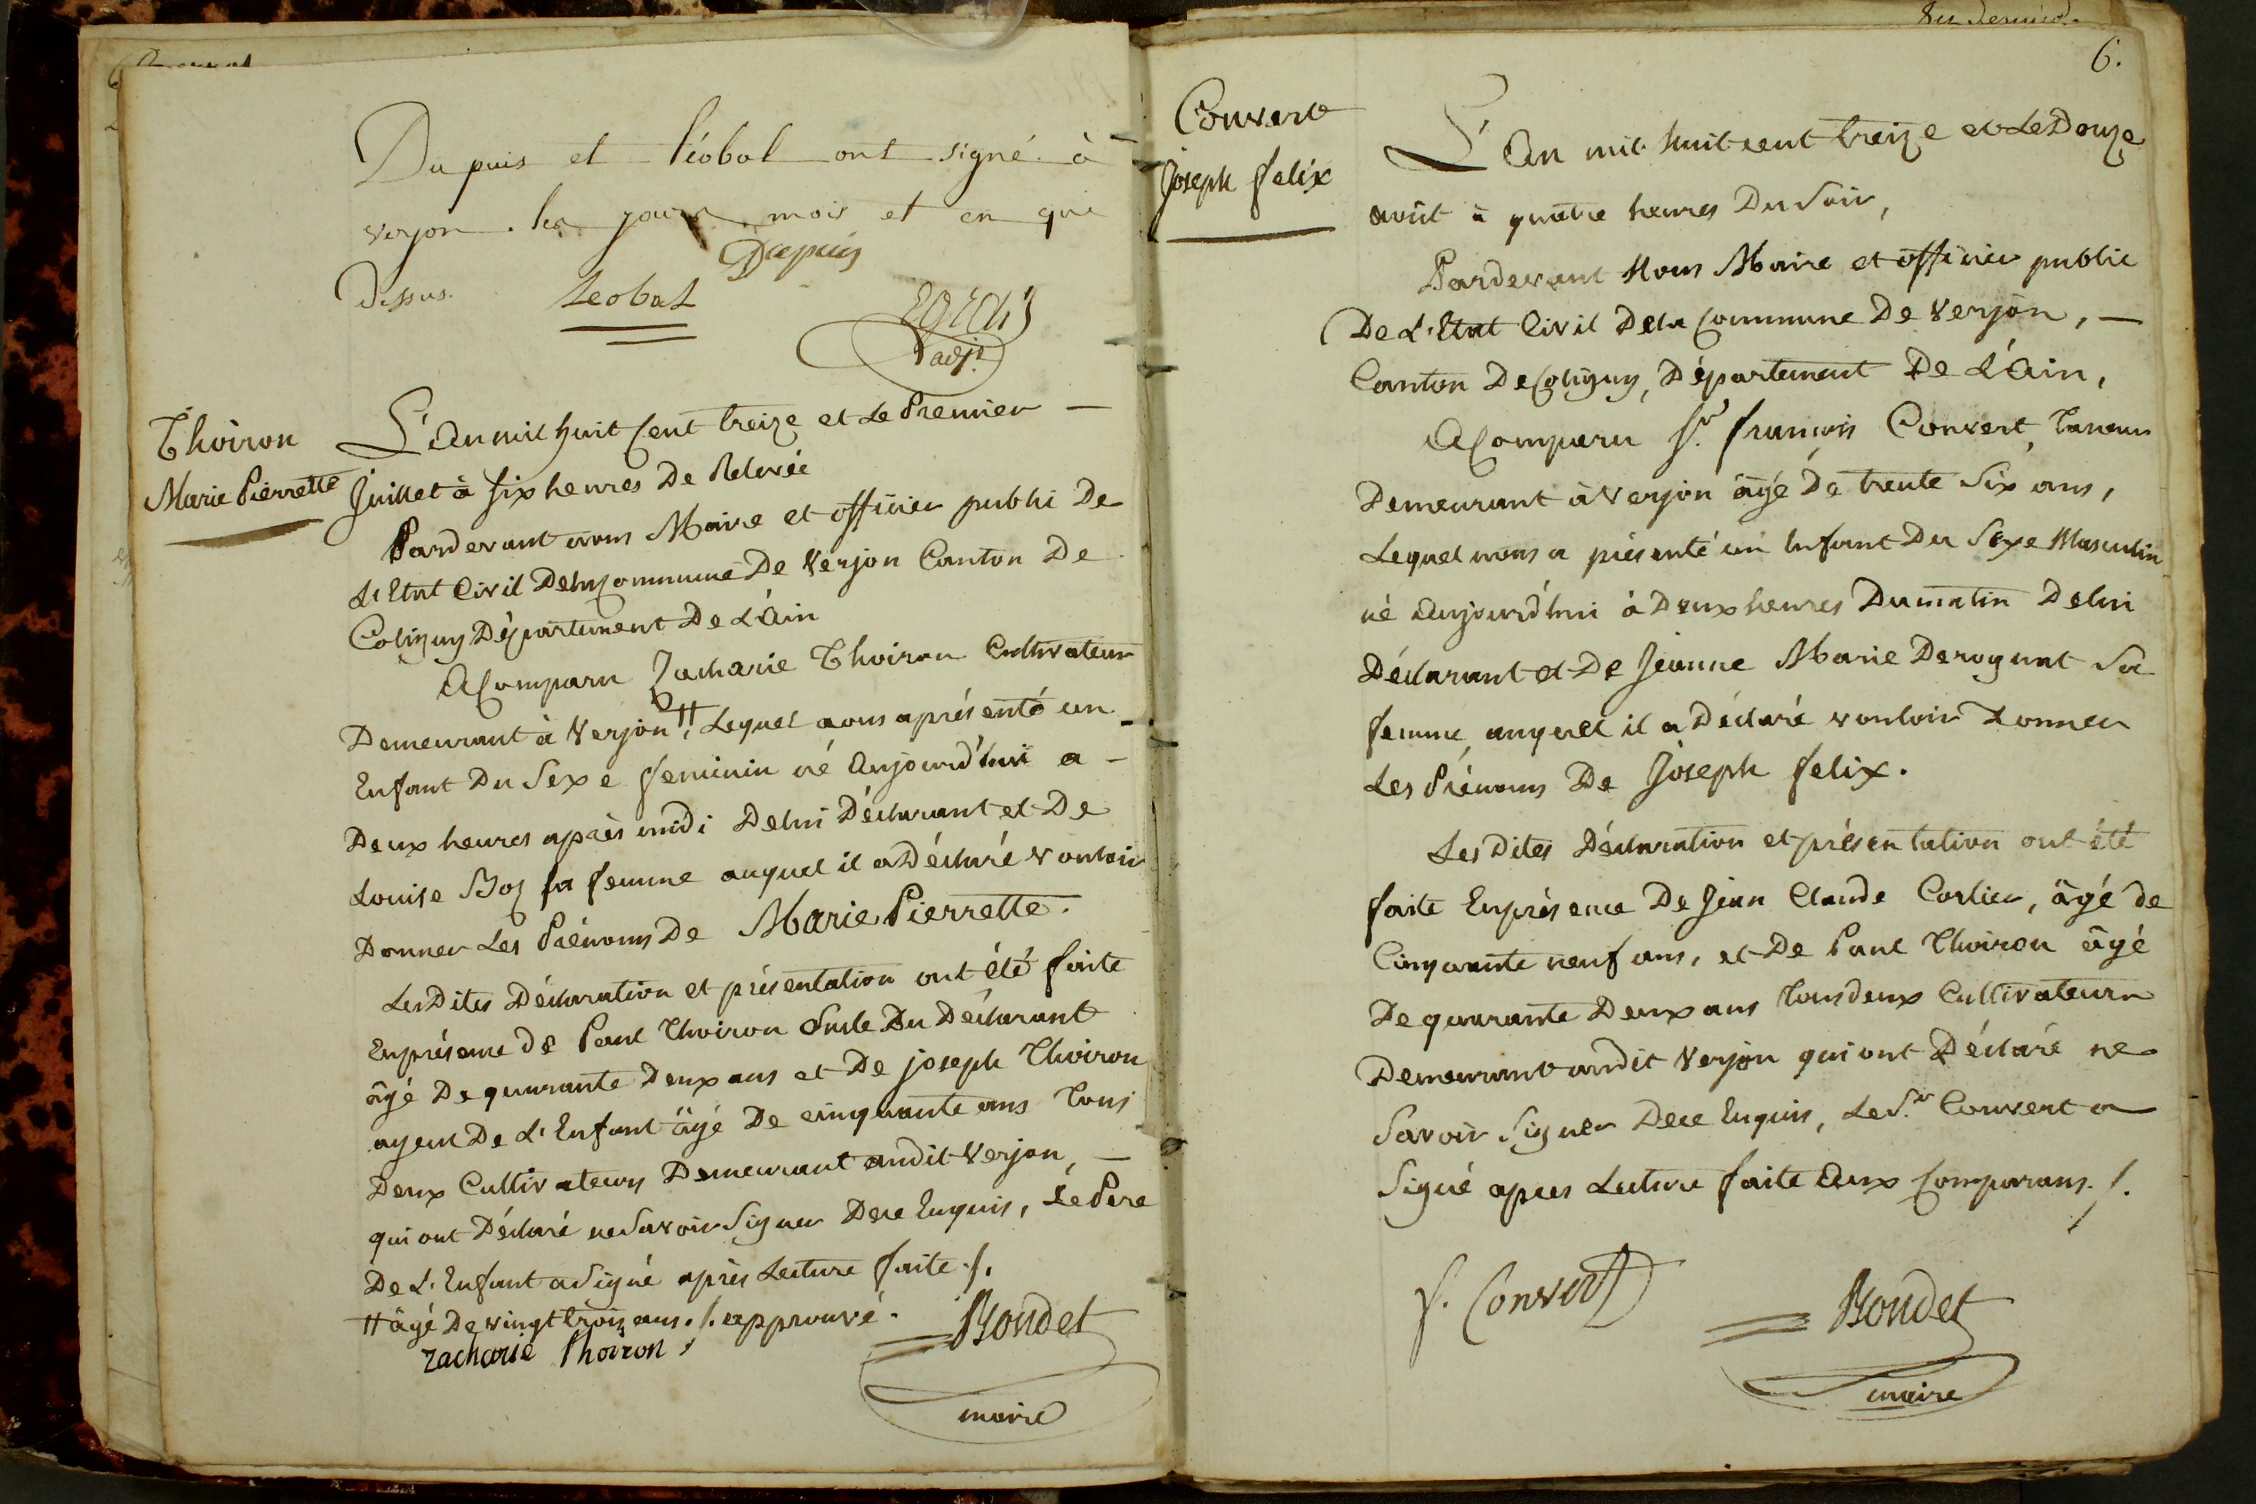 Dupuis et Léobal ont signé à
verjon. les jours mois et en que
dessus.
Dupuis
Leobal
adjt
Thoiron
Marie Pierrette
L'An mil huit Cent treize et Le Premier —
Juillet à six heures De Relevée
Pardevant nous Maire et officier publi De
L'Etat Civil Dela Commune De Verjon Canton De
Coligny Département De L'Ain
A Comparu Zacharie Thoiron Cultivateur
Demeurant à Verjon #, Lequel nous a présenté un
Enfant Du Sexe feminin né Aujourd'hui a —
Deux heures après midi Delui Déclarant et De
Louise Boz sa femme auquel il a Déclaré vouloir
Donner Les Prénoms De Marie Pierrette.
Les Dites Déclaration et présentation ont été faite
En présence de Paul Thoiron Oncle Du Déclarant
âgé De quarante Deux ans et De joseph Thoiron
ayeul De L'Enfant âgé De cinquante ans Tous
Deux Cultivateurs Demeurant audit Verjon, —
qui ont Déclaré ne Savoir Signer Dece Enquis, Le Pere
De L'Enfant a Signé après Lecture faite ./.
# âgé De vingt trois ans ./. approuvé.
zacharie Thoiron
Bondet
maire
6.
Convert
Joseph felix
L'An mil huit cent treize et Le Douze
août à quatre heures Du Soir,
Pardevant Nous Maire et officier public
De L'Etat Civil Dela Commune De Verjon, —
Canton De Coligny, Département De L'Ain,
A Comparu Sr. françois Convert, Taneur
Demeurant à Verjon âgé De trente Six ans,
Lequel nous a présenté un Enfant Du Sexe Masculin
né aujourd'hui à Deux heures Du matin Delui
Déclarant et De Jeanne Marie Deroguat Sa
femme, auquel il a Déclaré vouloir Donner
Les Prénoms De Joseph felix.
Les Dites Déclaration et présentation ont été
faite En présence De Jean Claude Corlier, âgé de
Cinquante neuf ans, et De Paul Thoiron âgé
De quarante Deux ans Tous deux Cultivateurs
Demeurant audit Verjon qui ont Déclaré ne
Savoir Signer Dece Enquis, Le Sr. Convert a
Signé apres Lecture faite Aux Comparans ./.
f. Convert
Bondet
maire